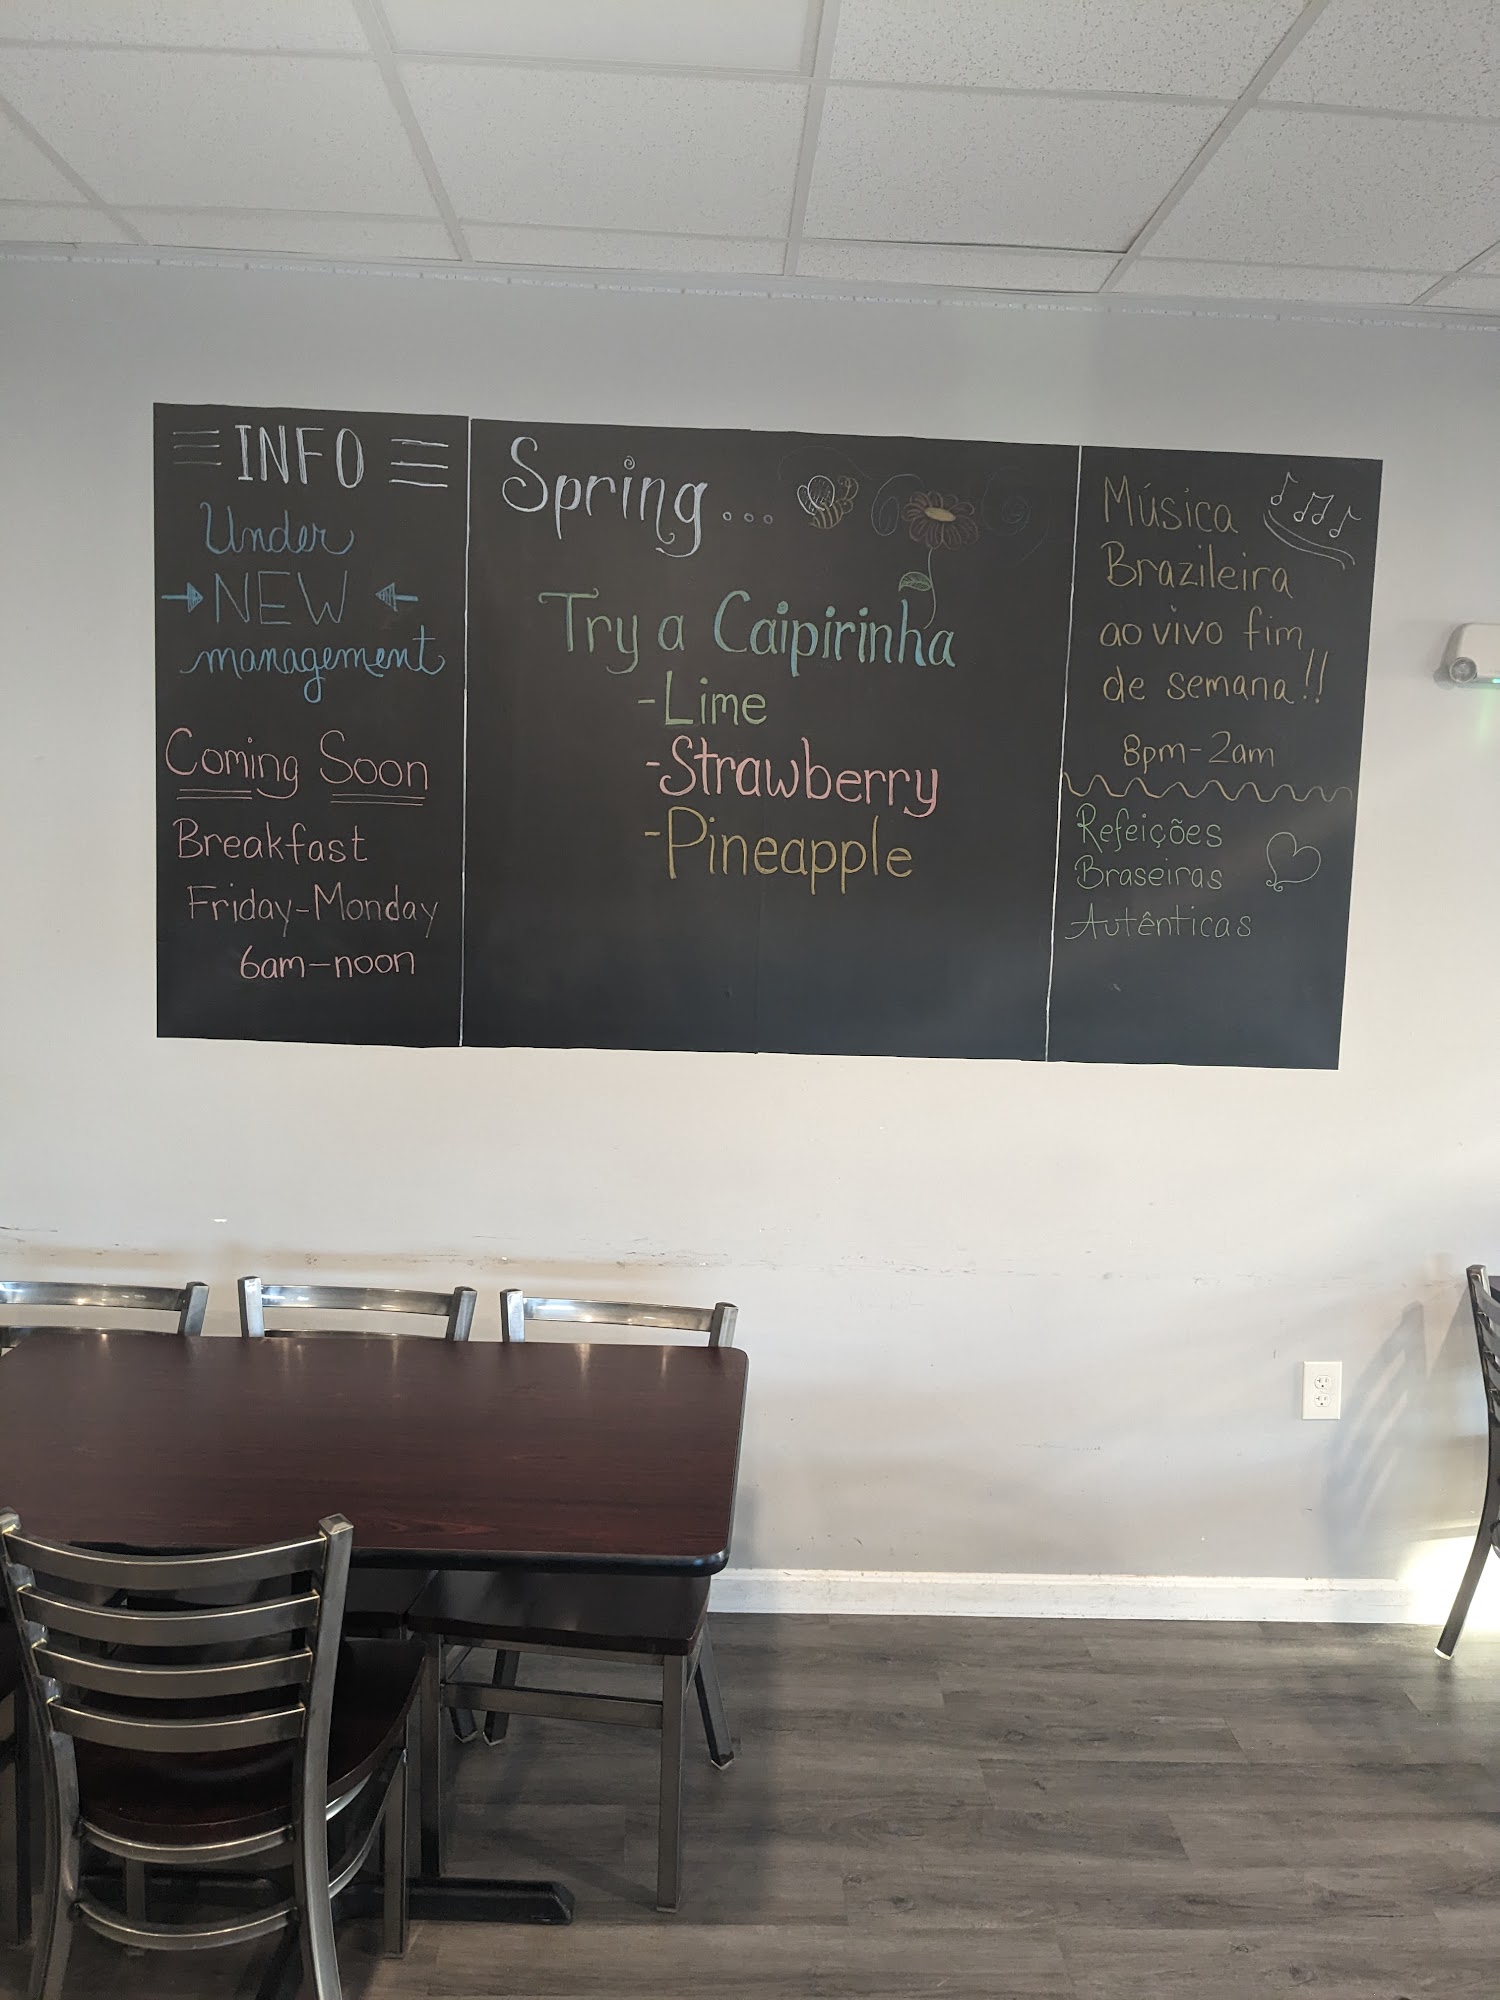 INFO
Under
NEW
management
Coming Soon
Breakfast
Friday-Monday
6am-noon
Spring...
Try a Caipirinha
-Lime
-Strawberry
-Pineapple
Música
Brazileira
ao vivo fim
de semana!!
8pm-2am
Refeições
Braseiras
Autênticas